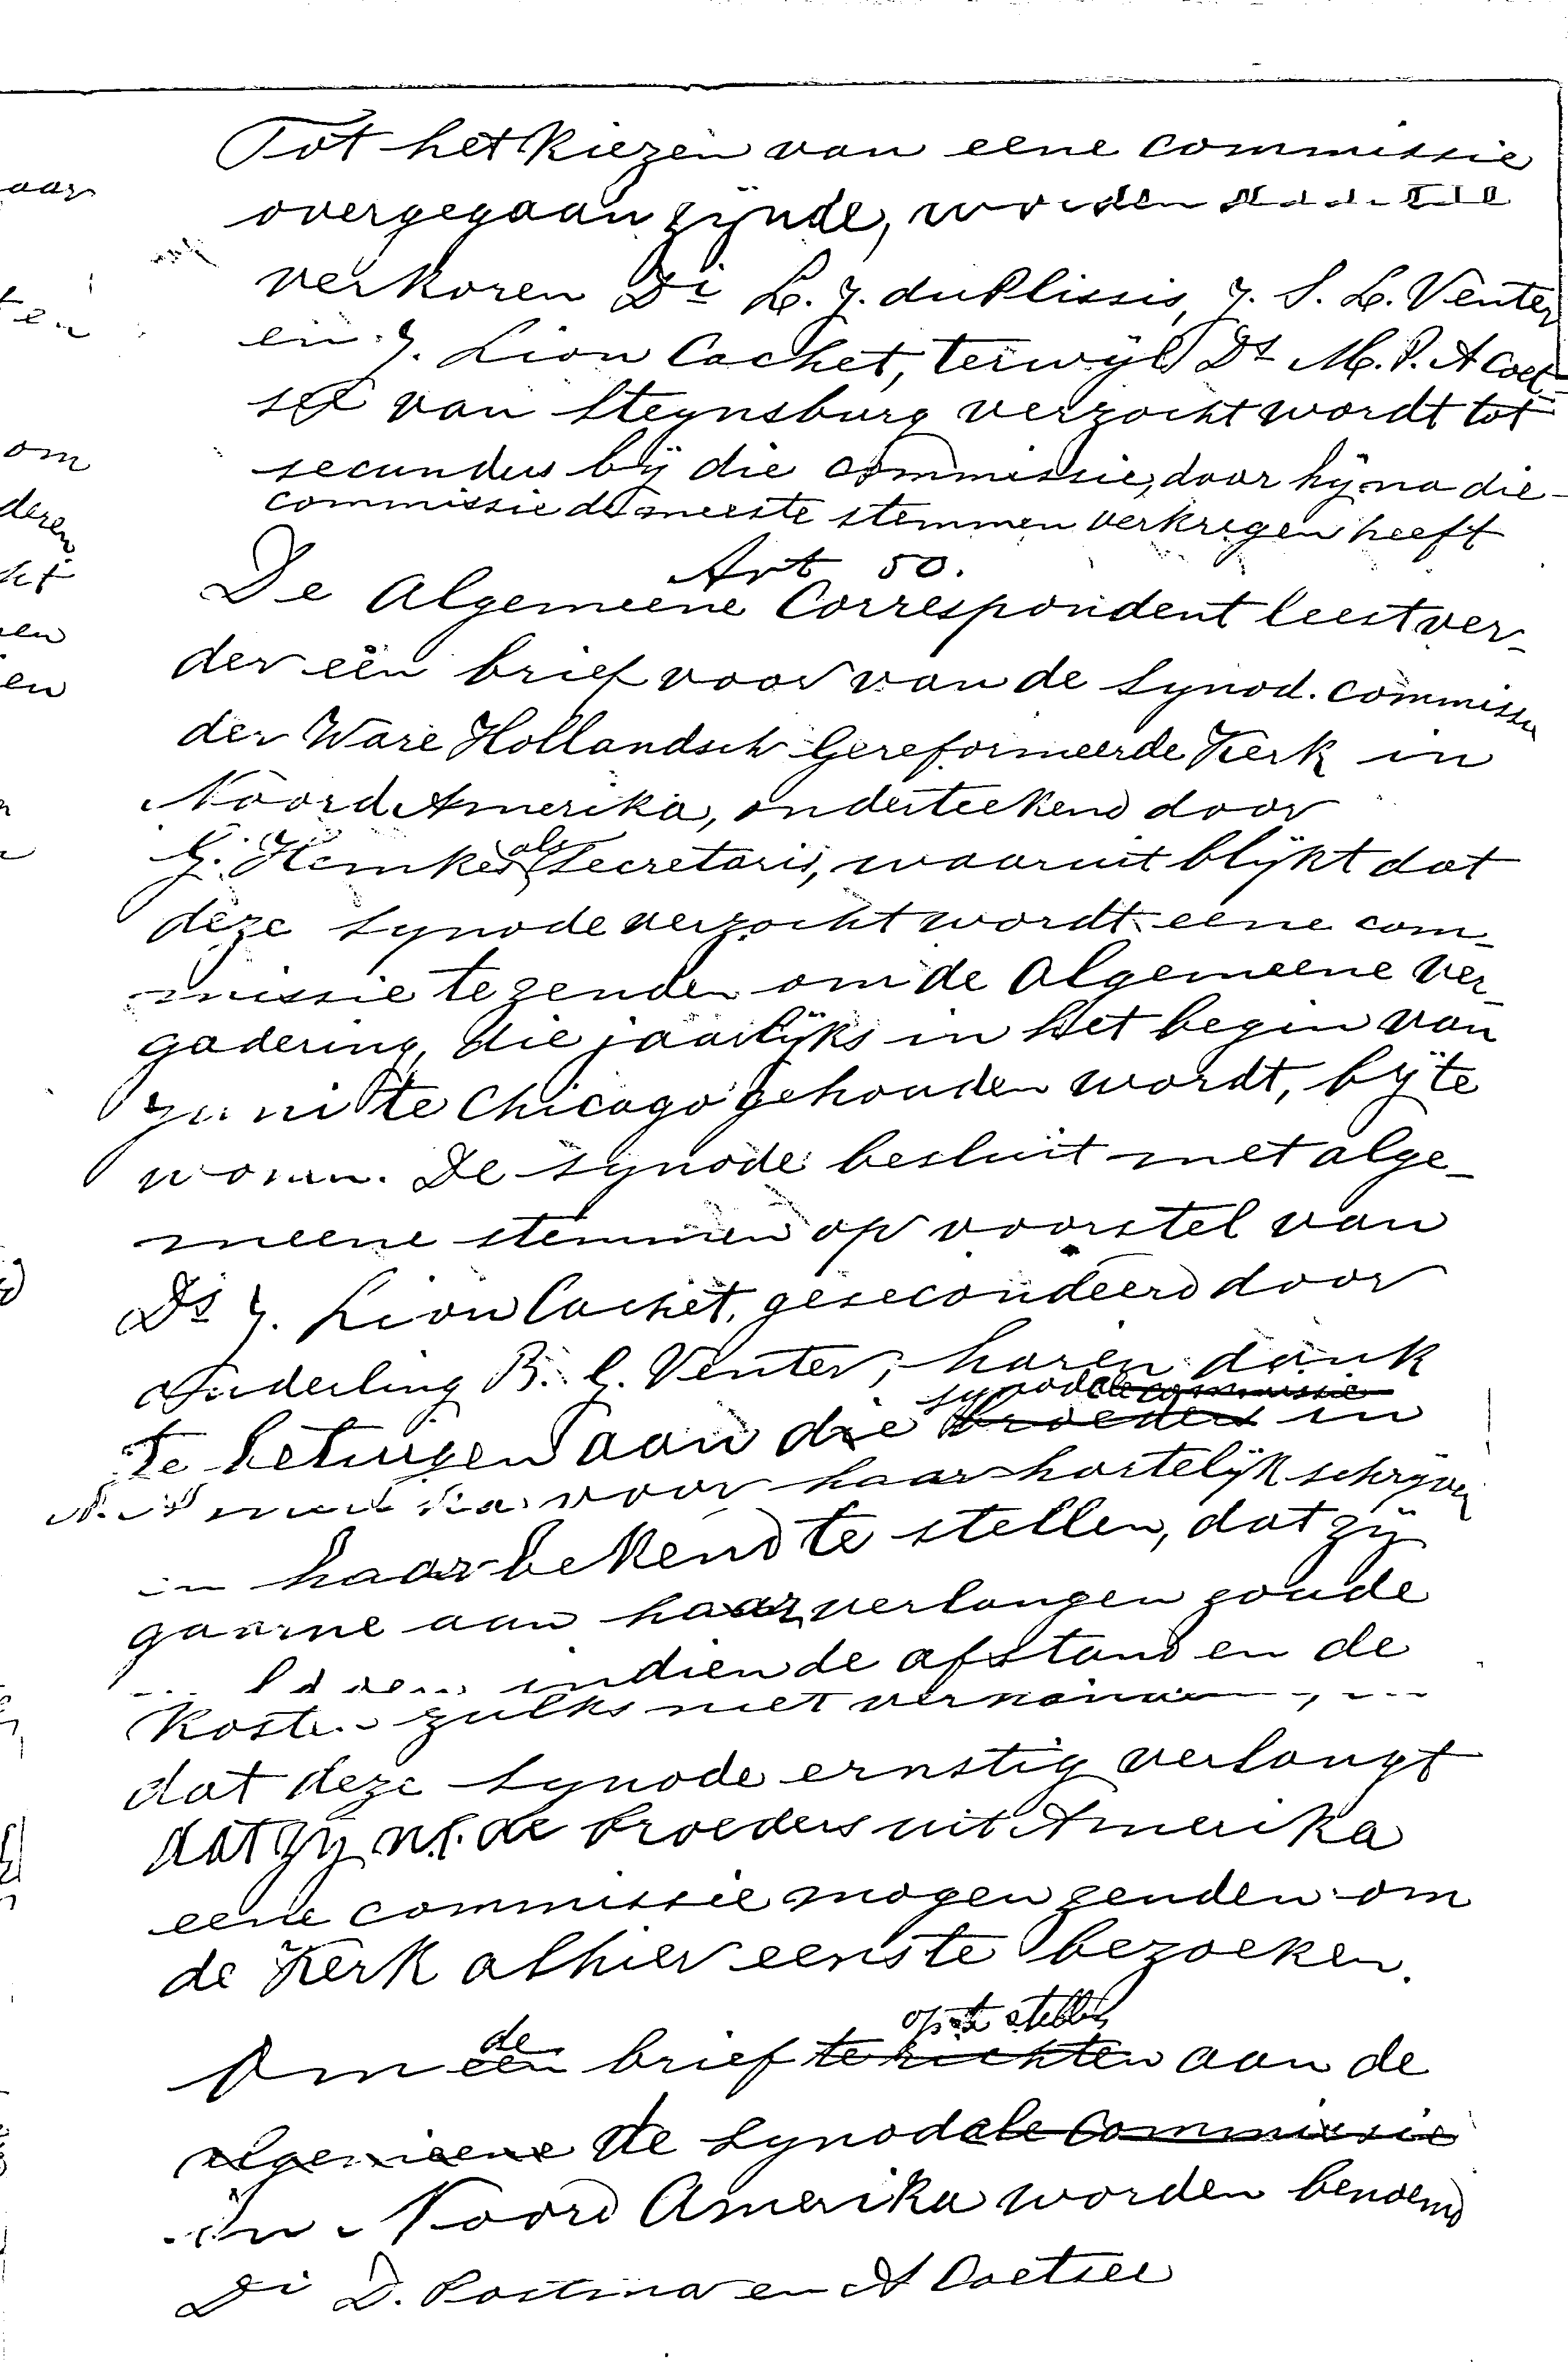 Tot het kiezen van eene commissie
overgegaan zijnde, worden
verkoren Di L. J. du Plissis, J. S. L. Venter
en J. Lion Cachet, terwijl Ds M. P. A Coet-
see van Steynsburg verzocht wordt tot
secundus bij die commissie, daar hij na die
commissie de meeste stemmen verkregen heeft
Art 50.
De Algemeene Correspondent leest ver-
der een brief voor van de Synod. commissie
der Ware Hollandsch Gereformeerde Kerk in
Noord Amerika, onderteekend door
G. Hemkes als Secretaris, waaruit blijkt dat
deze Synode verzocht wordt eene com-
missie te zenden om de Algemeene Ver-
gadering, die jaarlijks in het begin van
Juni te Chicago gehouden wordt, bij te
wonen. De Synode besluit met alge-
meene stemmen op voorstel van
Ds J. Lion Cachet, gesecondeerd door
Ouderling B. G. Venter, haren dank
synodale commissie
te betuigen aan die broeders in
N. Amerika voor haar hartelijk schrijven
en haar bekend te stellen, dat zij
gaarne aan haar verlangen zoude
indien de afstand en de
Kosten zulks niet
dat deze Synode ernstig verlangt
dat zij n.l. de broeders uit Amerika
eene commissie mogen zenden om
de Kerk alhier eens te bezoeken.
de op te stellen
Om een brief te richten aan de
algemeene de Synodale Commissie
in Noord Amerika worden benoemd
Di D. Postma en A Coetsee
aar
ten
om
deren
en